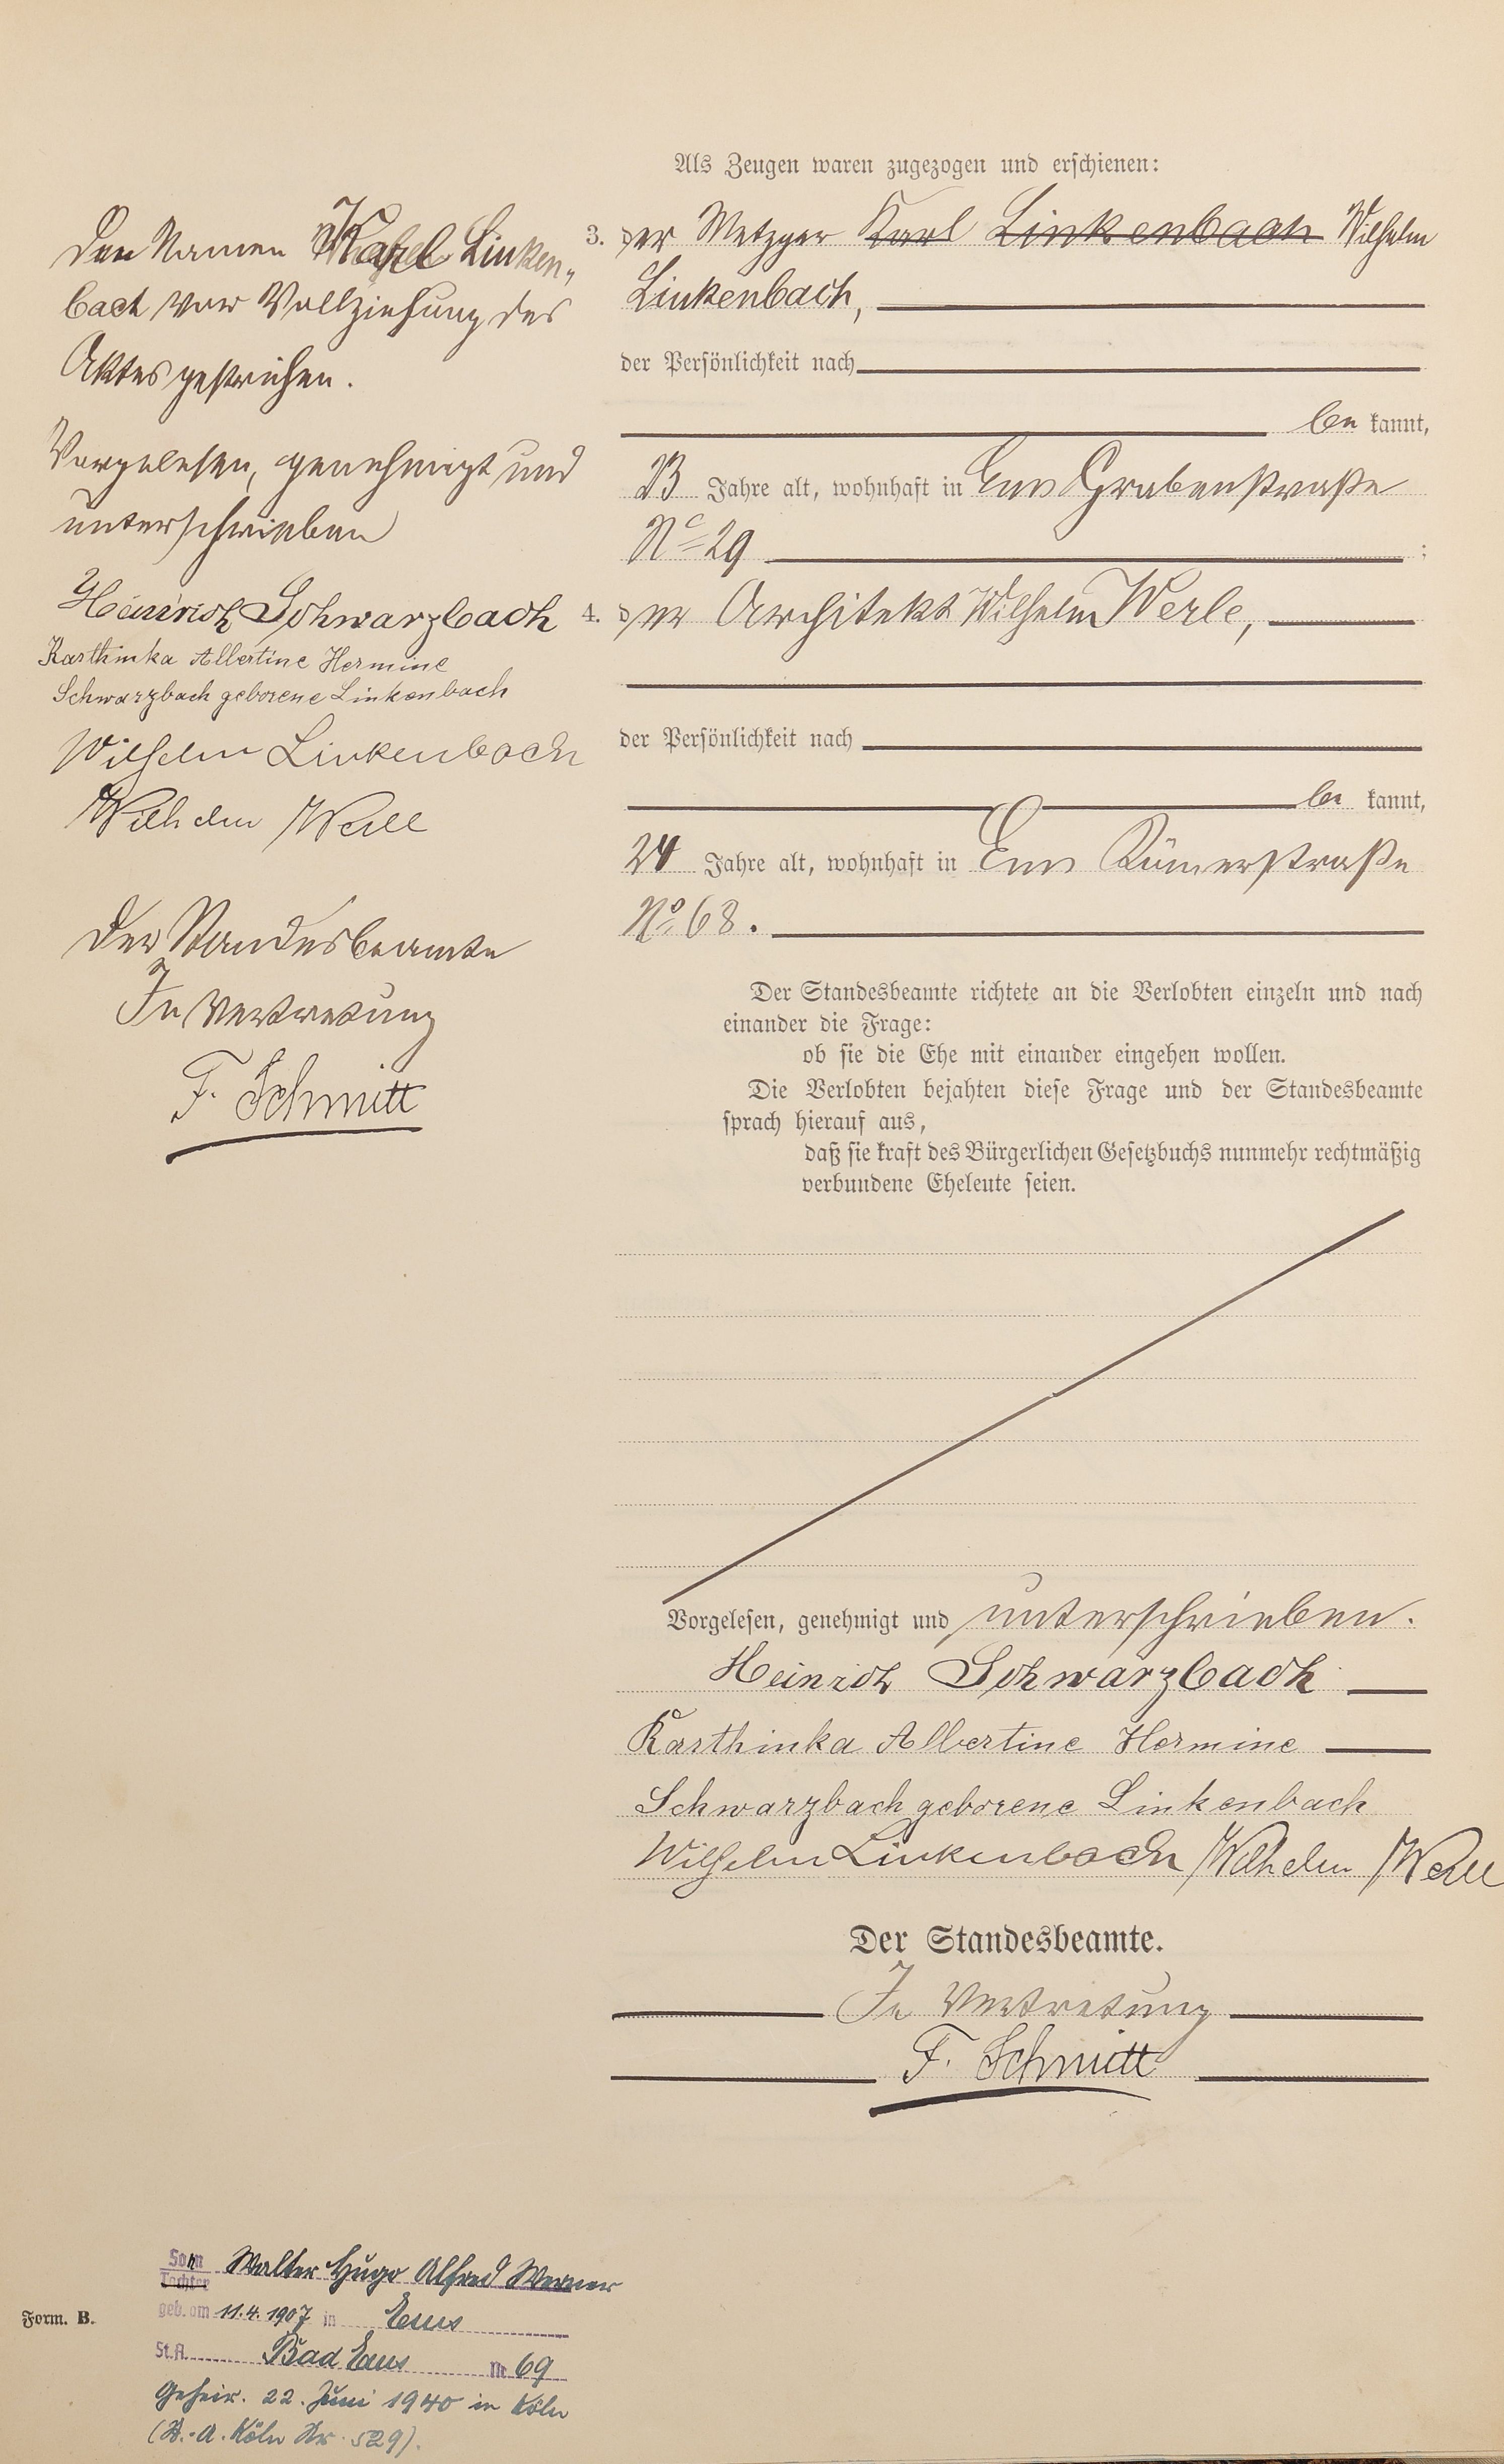 Als Zeugen waren zugezogen und erschienen:
3. der Metzger Karl Linkenbach Wilhelm
Linkenbach,
der Persönlichkeit nach
be kannt,
23 Jahre alt, wohnhaft in Ems Grabenstraße
No 29 ;
4. der Architekt Wilhelm Werle,
der Persönlichkeit nach
be kannt,
24 Jahre alt, wohnhaft in Ems Römerstraße
No 68.
Der Standesbeamte richtete an die Verlobten einzeln und nach
einander die Frage:
ob sie die Ehe mit einander eingehen wollen.
Die Verlobten bejahten diese Frage und der Standesbeamte
sprach hierauf aus,
daß sie kraft des Bürgerlichen Gesetzbuchs nunmehr rechtmäßig
verbundene Eheleute seien.
Vorgelesen, genehmigt und unterschrieben.
Heinrich Schwarzbach
Karthinka Albertine Hermine
Schwarzbach geborene Linkenbach
Wilhelm Linkenbach Wilhelm Werle
Der Standesbeamte.
In Vertretung
F. Schmitt
Den Namen Karl Linken-
bach vor Vollziehung des
Aktes gestrichen.
Vorgelesen, genehmigt und
unterschrieben
Heinrich Schwarzbach
Karthinka Albertine Hermine
Schwarzbach geborene Linkenbach
Wilhelm Linkenbach
Wilhelm Werle
Der Standesbeamte
In Vertretung
F. Schmitt
Sohn Walter Hugo Alfred Werner
Tochter
geb. am 11.4.1907 in Ems
St.A. Bad Ems Nr 69
Geheir. 22. Juni 1940 in Köln
(St.-A. Köln Nr. 529).
Form. B.